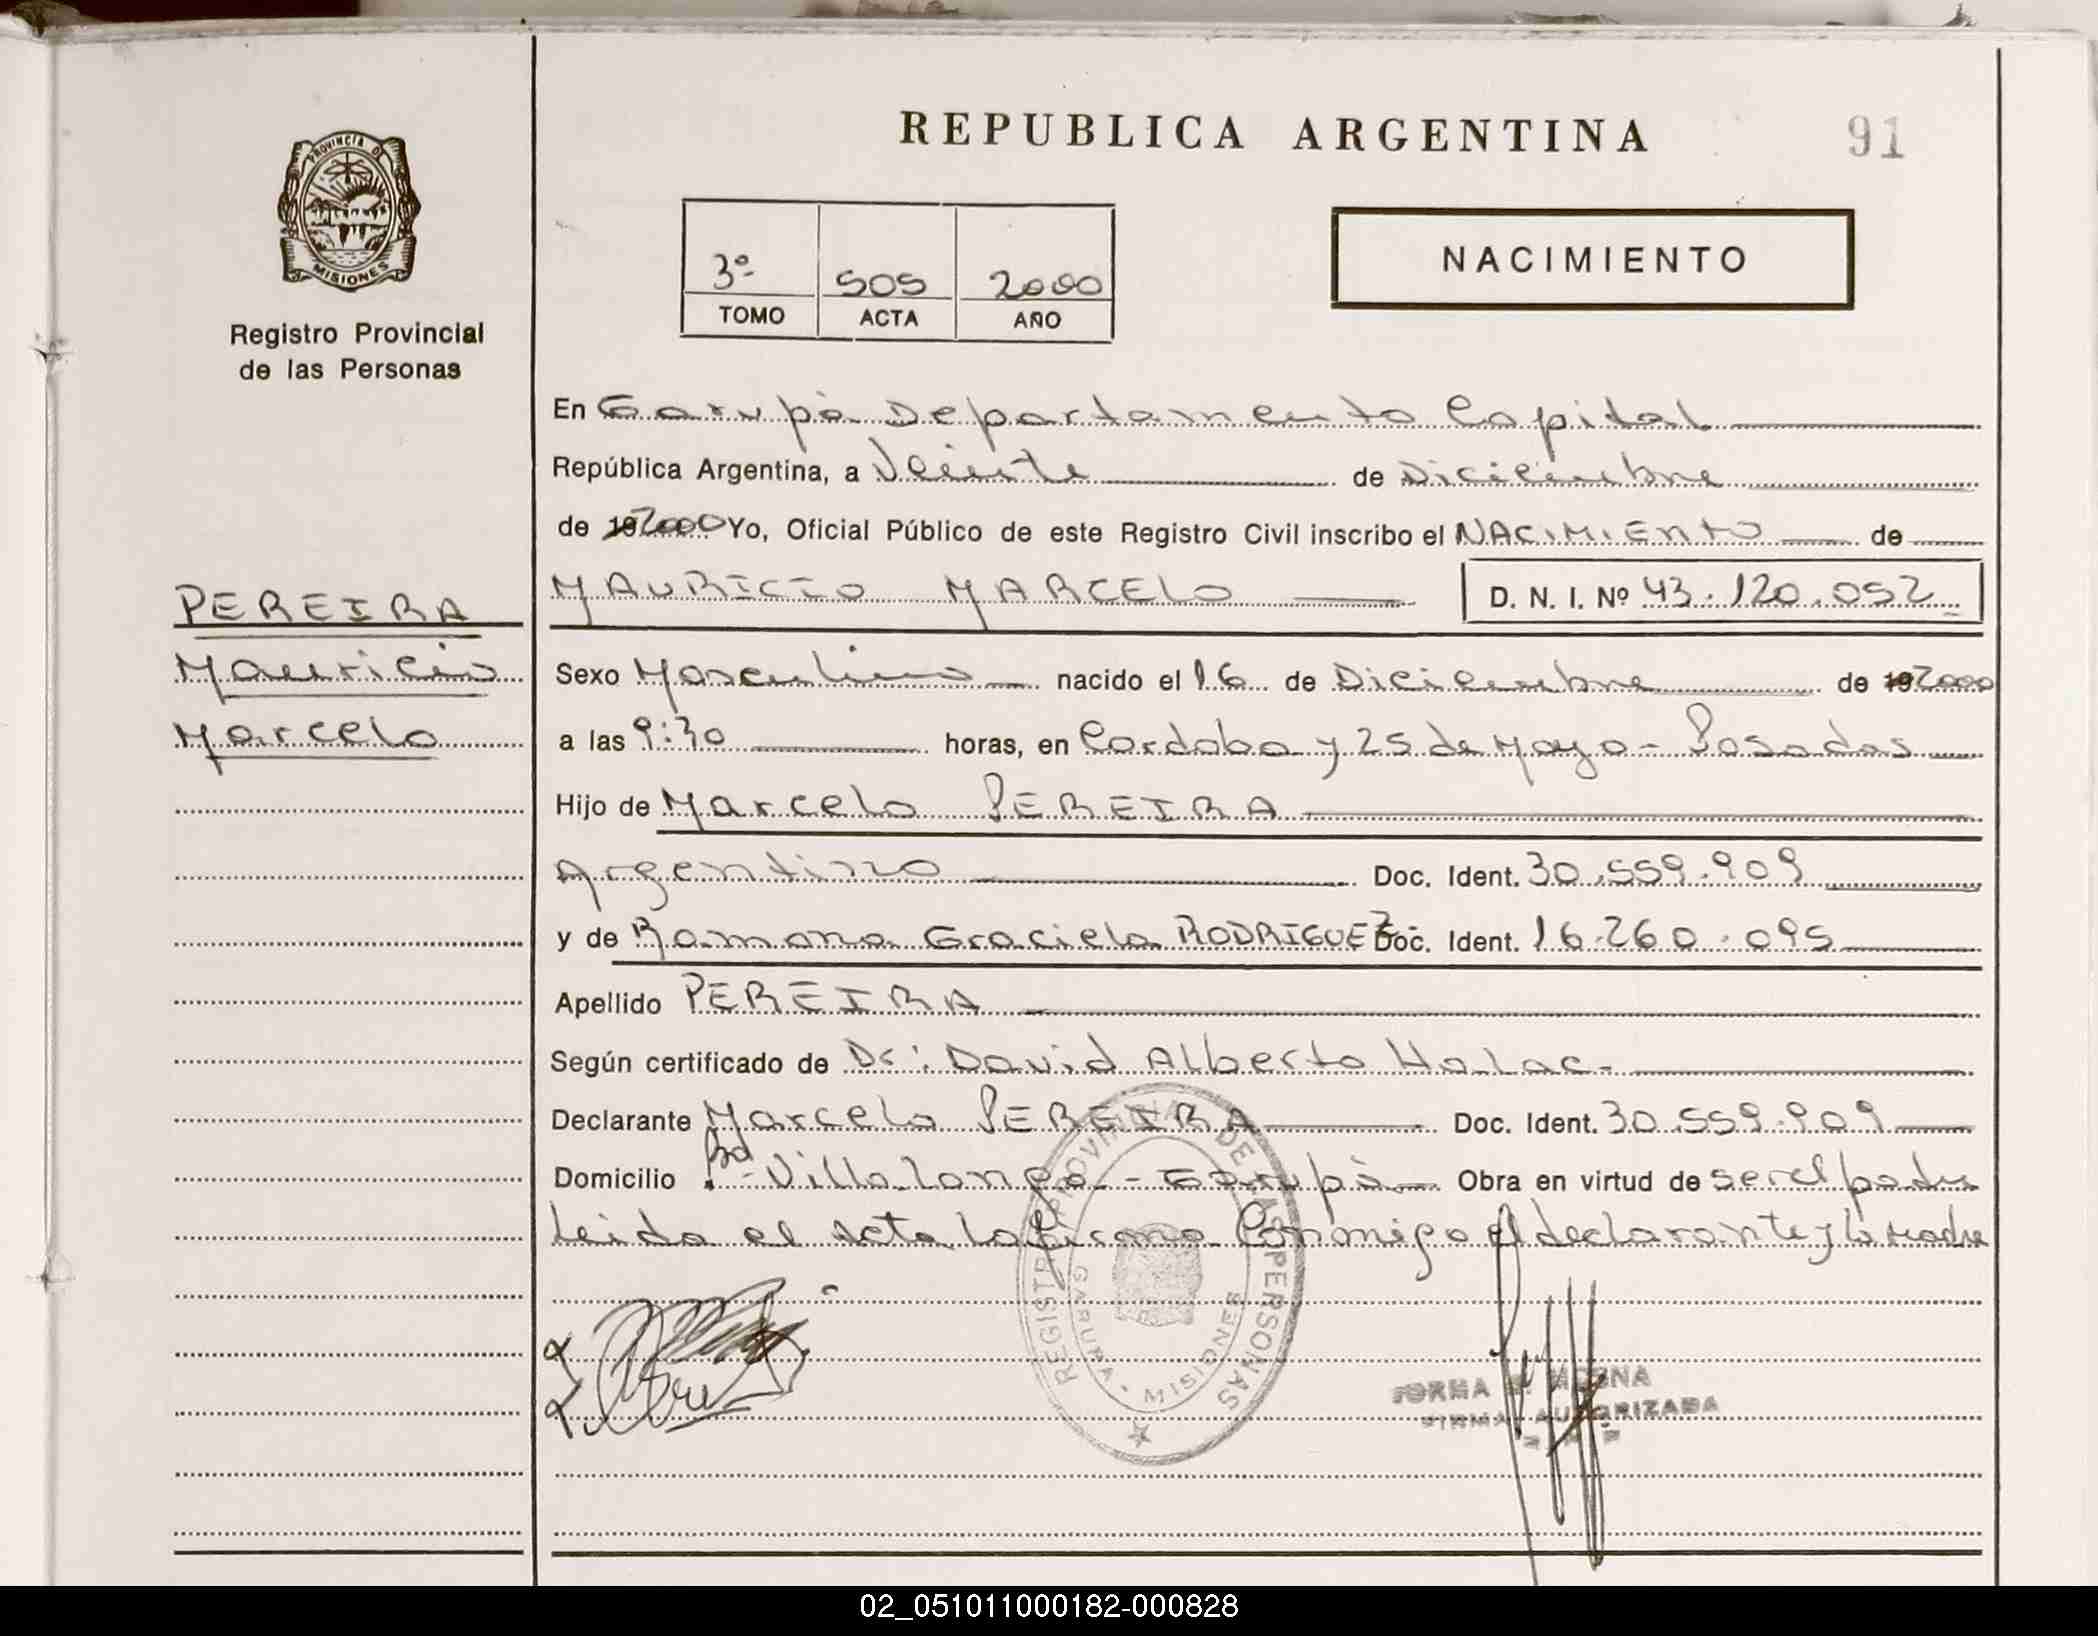 REPUBLICA ARGENTINA
91
PROVINCIA DE
MISIONES
Registro Provincial
de las Personas
3º 505 2000
TOMO ACTA AÑO
NACIMIENTO
En Garupà Departamento Capital
República Argentina, a Veinte de Diciembre
de 19 2000 Yo, Oficial Público de este Registro Civil inscribo el NACIMIENTO de
PEREIRA
MAURICIO MARCELO D. N. I. Nº 43.120.052
Mauricio
Sexo Masculino nacido el 16 de Diciembre de 19 2000
Marcelo
a las 9:30 horas, en Cordoba y 25 de Mayo - Posadas
Hijo de Marcelo PEREIRA
Argentino Doc. Ident. 30.559.909
y de Ramona Graciela RODRIGUEZ Doc. Ident. 16.260.095
Apellido PEREIRA
Según certificado de Dr: David Alberto Halac.
Declarante Marcelo PEREIRA Doc. Ident. 30.559.909
Domicilio Bº Villalonga - Garupà Obra en virtud de ser el padre
Leida el acta la firma Conmigo el declarante y la madre
REGISTRO PROVINCIAL DE LAS PERSONAS
GARUPA - MISIONES
FIRMA AUTORIZADA
02_051011000182-000828